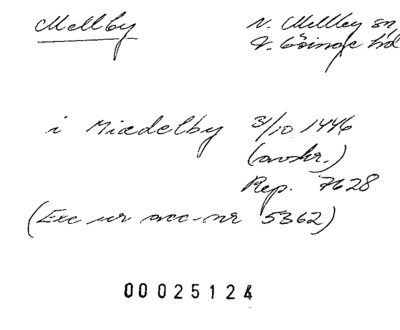 Mellby
N. Mellby sn,
V. Göinge hd
i Miædelby 31/10 1446
(avskr.)
Rep. 7628
(Exc ur acc-nr 5362)
00025124